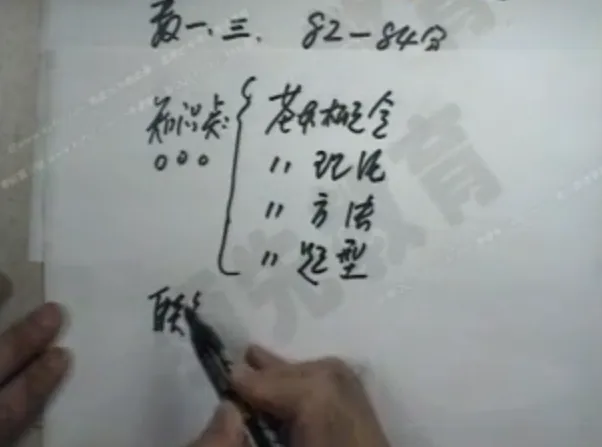 数一、三. 82-84分
知识点: { 基本概念
○○○ 〃 理论
〃 方法
〃 题型
联